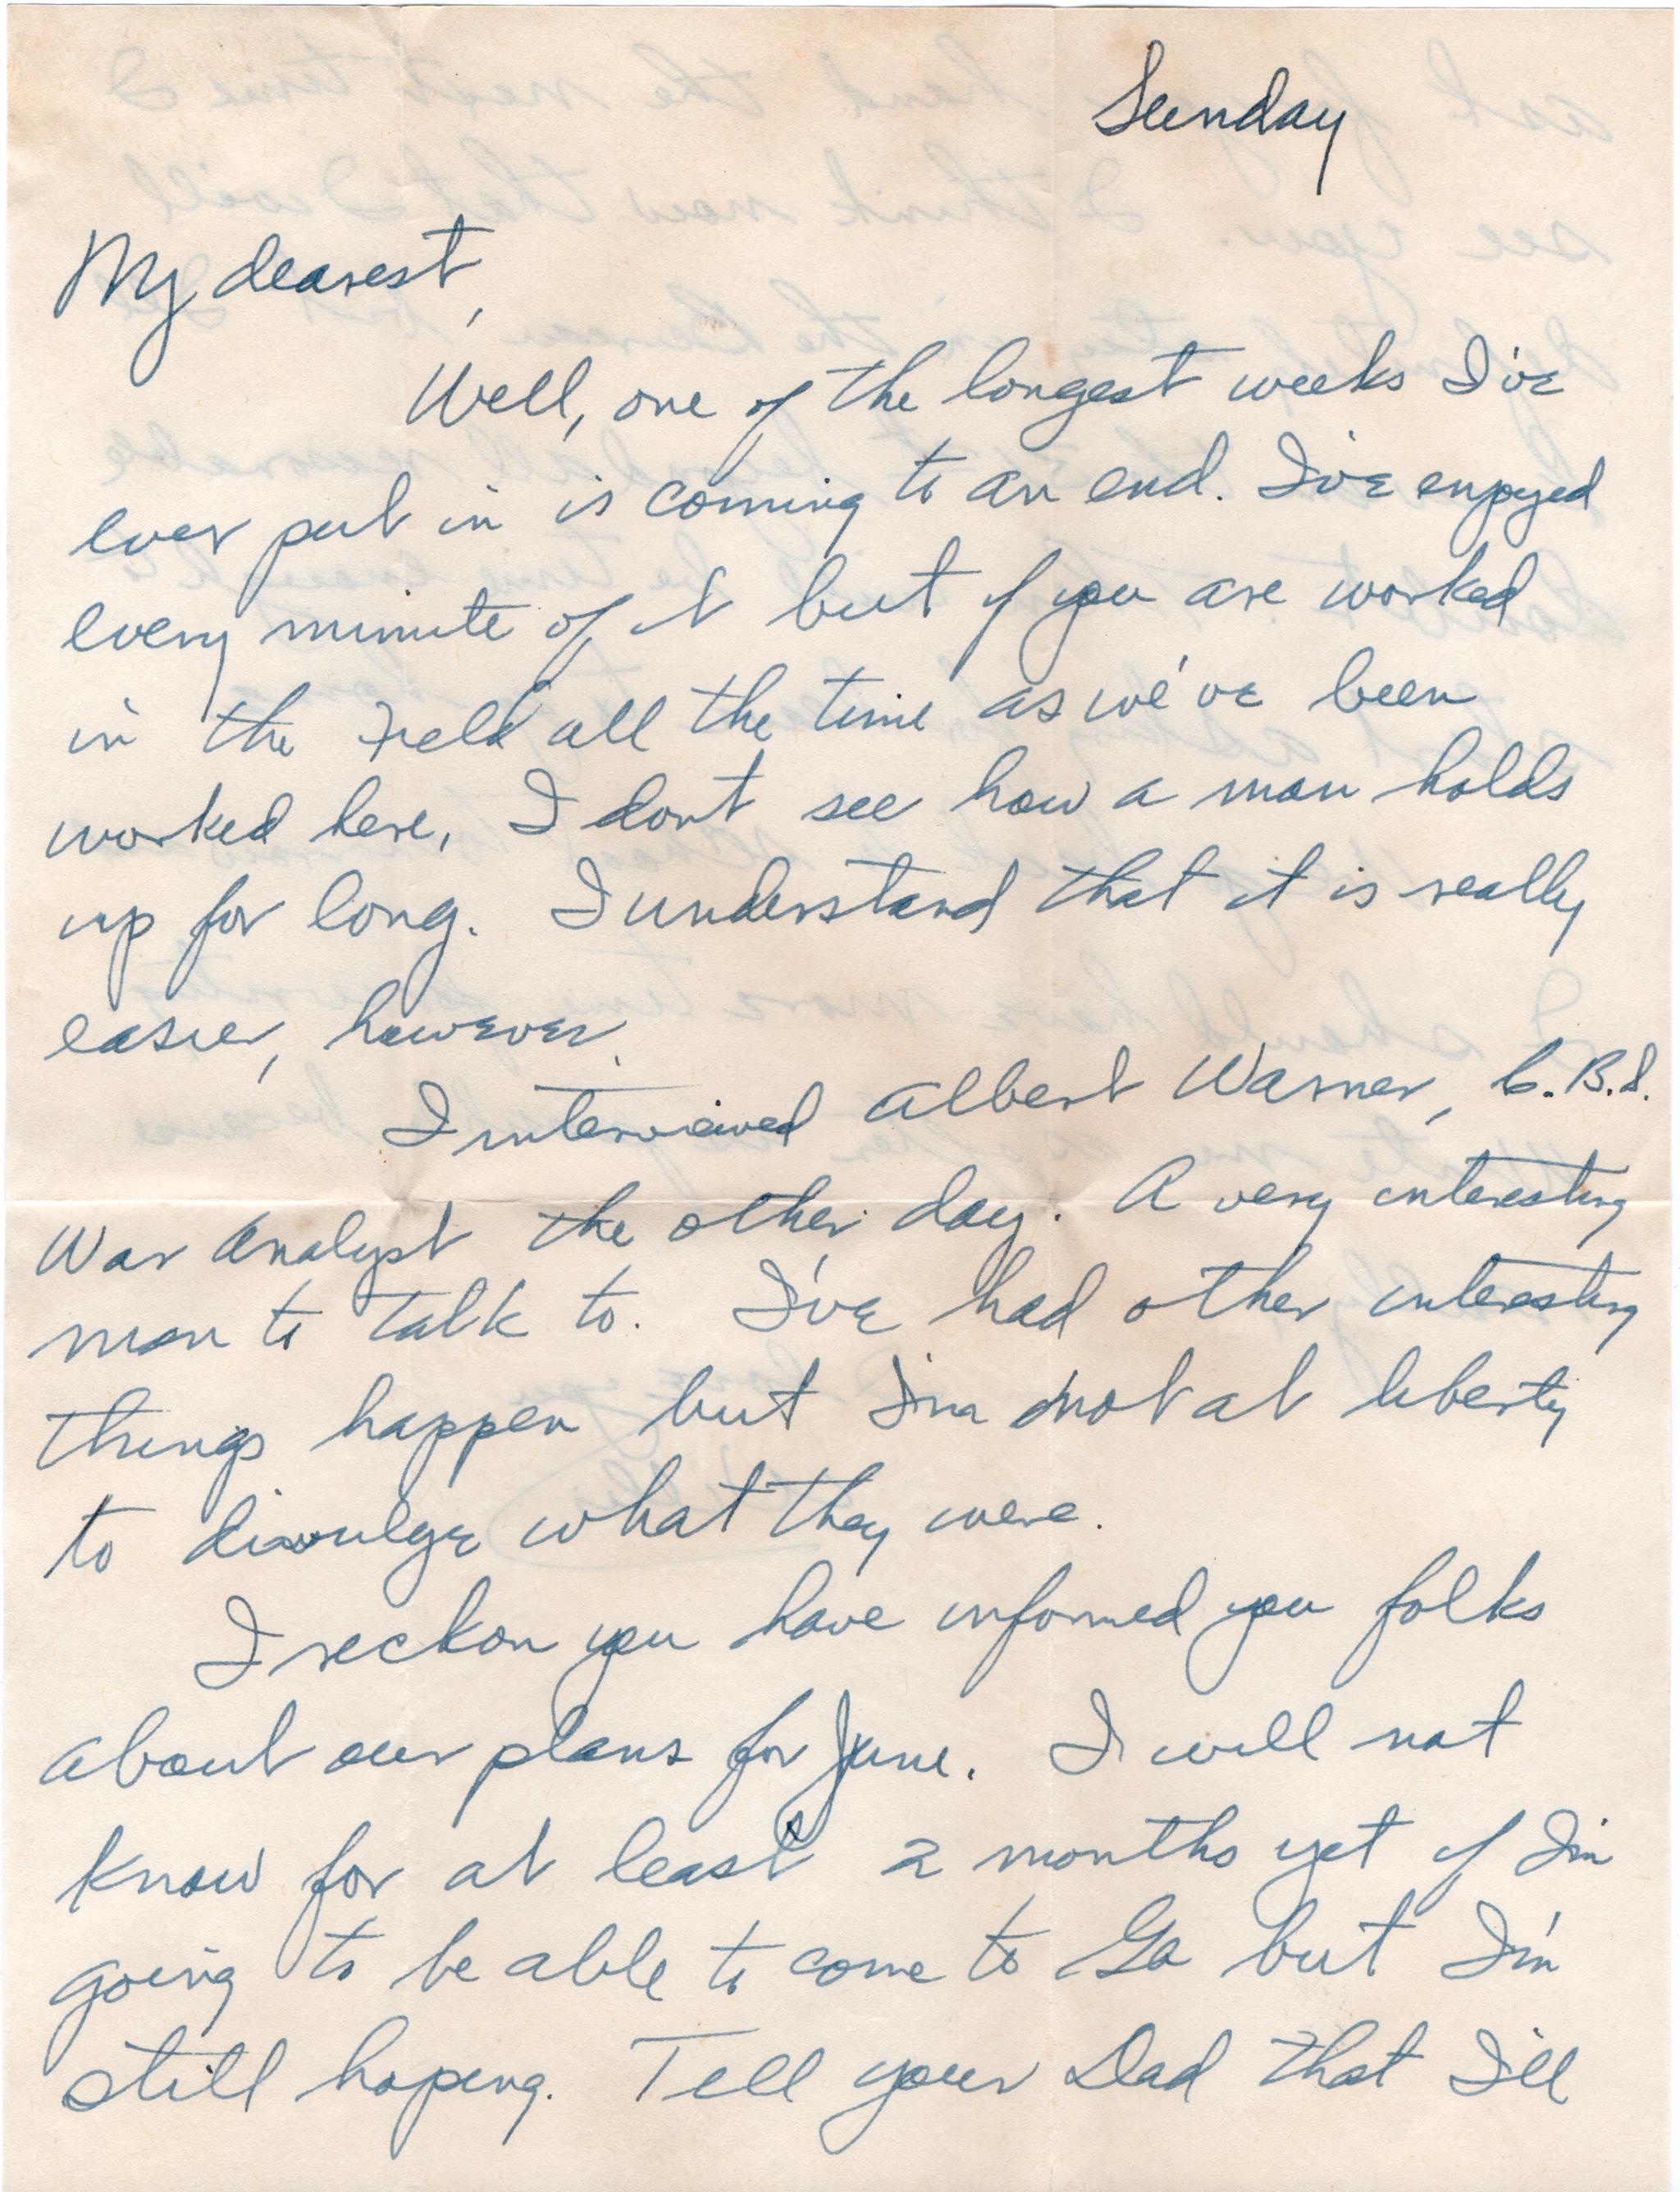 Sunday
My dearest,
Well, one of the longest weeks I've
ever put in is coming to an end. I've enjoyed
every minute of it but if you are worked
in the field all the time as we've been
worked here, I don't see how a man holds
up for long. I understand that it is really
easier, however.
I interviewed Albert Warner, C.B.S.
War Analyst the other day. A very interesting
man to talk to. I've had other interesting
things happen but I'm not at liberty
to divulge what they were.
I reckon you have informed you folks
about our plans for June. I will not
know for at least 2 months yet if I'm
going to be able to come to Ga but I'm
still hoping. Tell your Dad that I'll